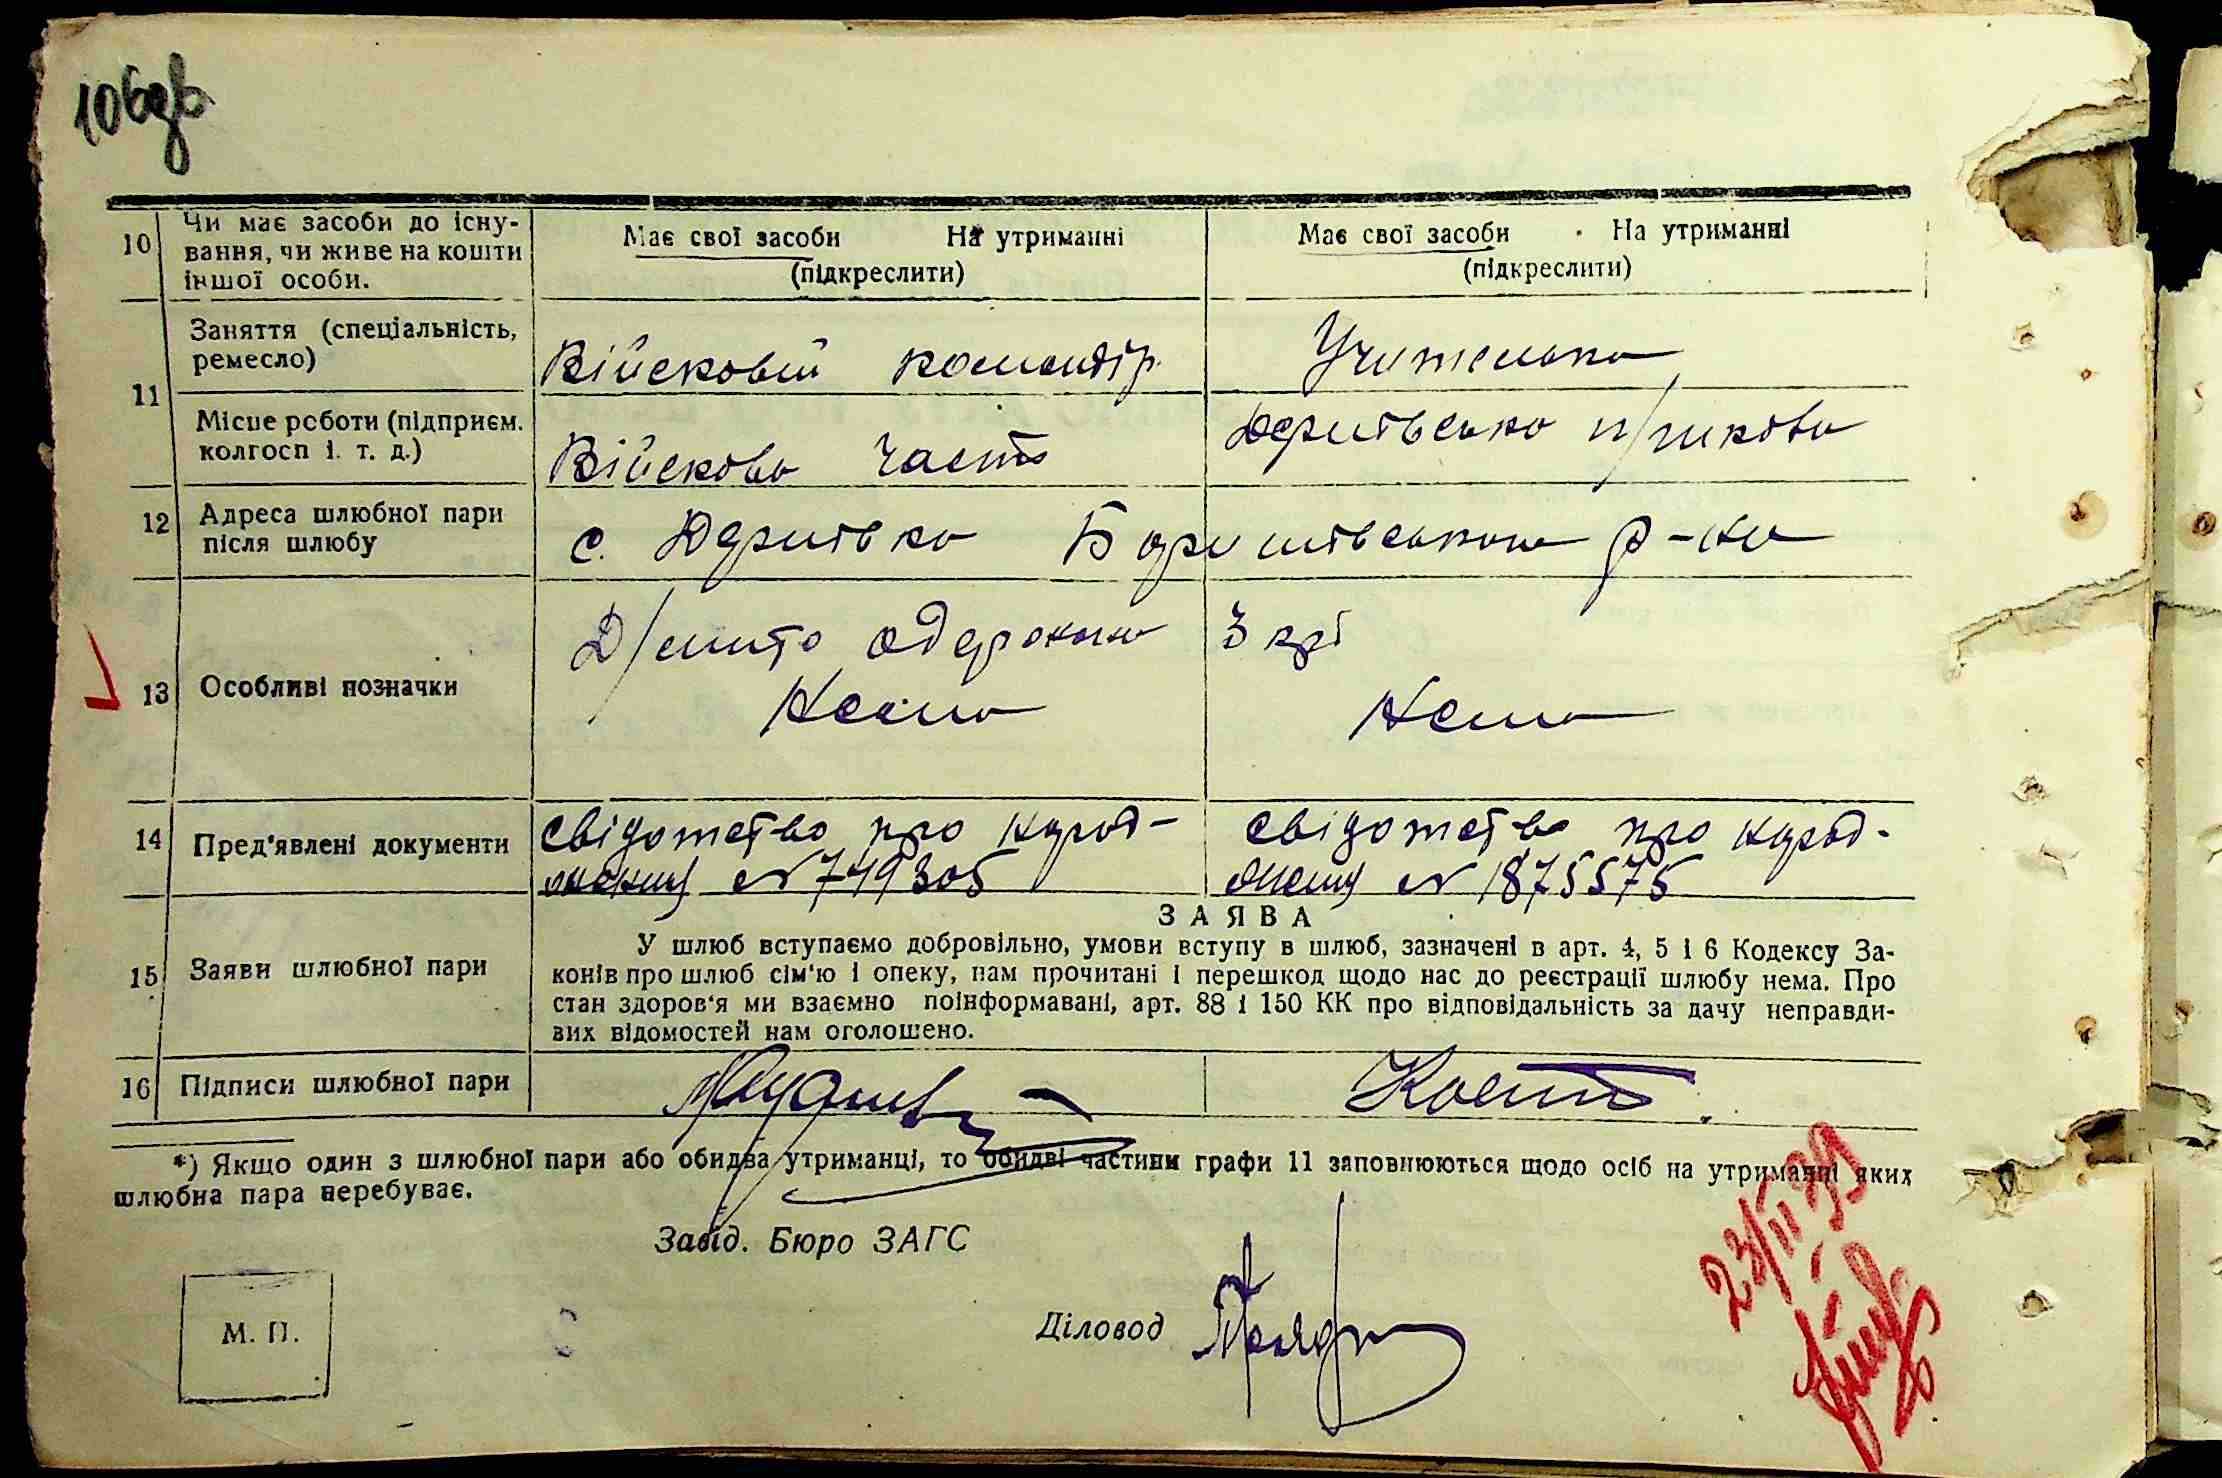 106зв
10 Чи має засоби до існу-
вання, чи живе на кошти
іншої особи.
Має свої засоби На утриманні
(підкреслити)
Має свої засоби На утриманні
(підкреслити)
11 Заняття (спеціальність,
ремесло)
Війсковий командір.
Учителька
Місце роботи (підприєм.
колгосп і. т. д.)
Війскова часть
п/школа
12 Адреса шлюбної пари
після шлюбу
с. р-на
13 Особливі позначки
3 крб
Нема
Нема
14 Пред'явлені документи
Свідотство про народ-
ження № 749305
Свідотство про народ-
женя № 1875575
15 Заяви шлюбної пари
ЗАЯВА
У шлюб вступаємо добровільно, умови вступу в шлюб, зазначені в арт. 4, 5 і 6 Кодексу За-
конів про шлюб сім'ю і опеку, нам прочитані і перешкод щодо нас до реєстрації шлюбу нема. Про
стан здоров'я ми взаємно поінформавані, арт. 88 і 150 КК про відповідальність за дачу неправди-
вих відомостей нам оголошено.
16 Підписи шлюбної пари
*) Якщо один з шлюбної пари або обидва утриманці, то обидві частини графи 11 заповнюються щодо осіб на утриманні яких
шлюбна пара перебуває.
Завід. Бюро ЗАГС
М. П.
Діловод
23/II 39